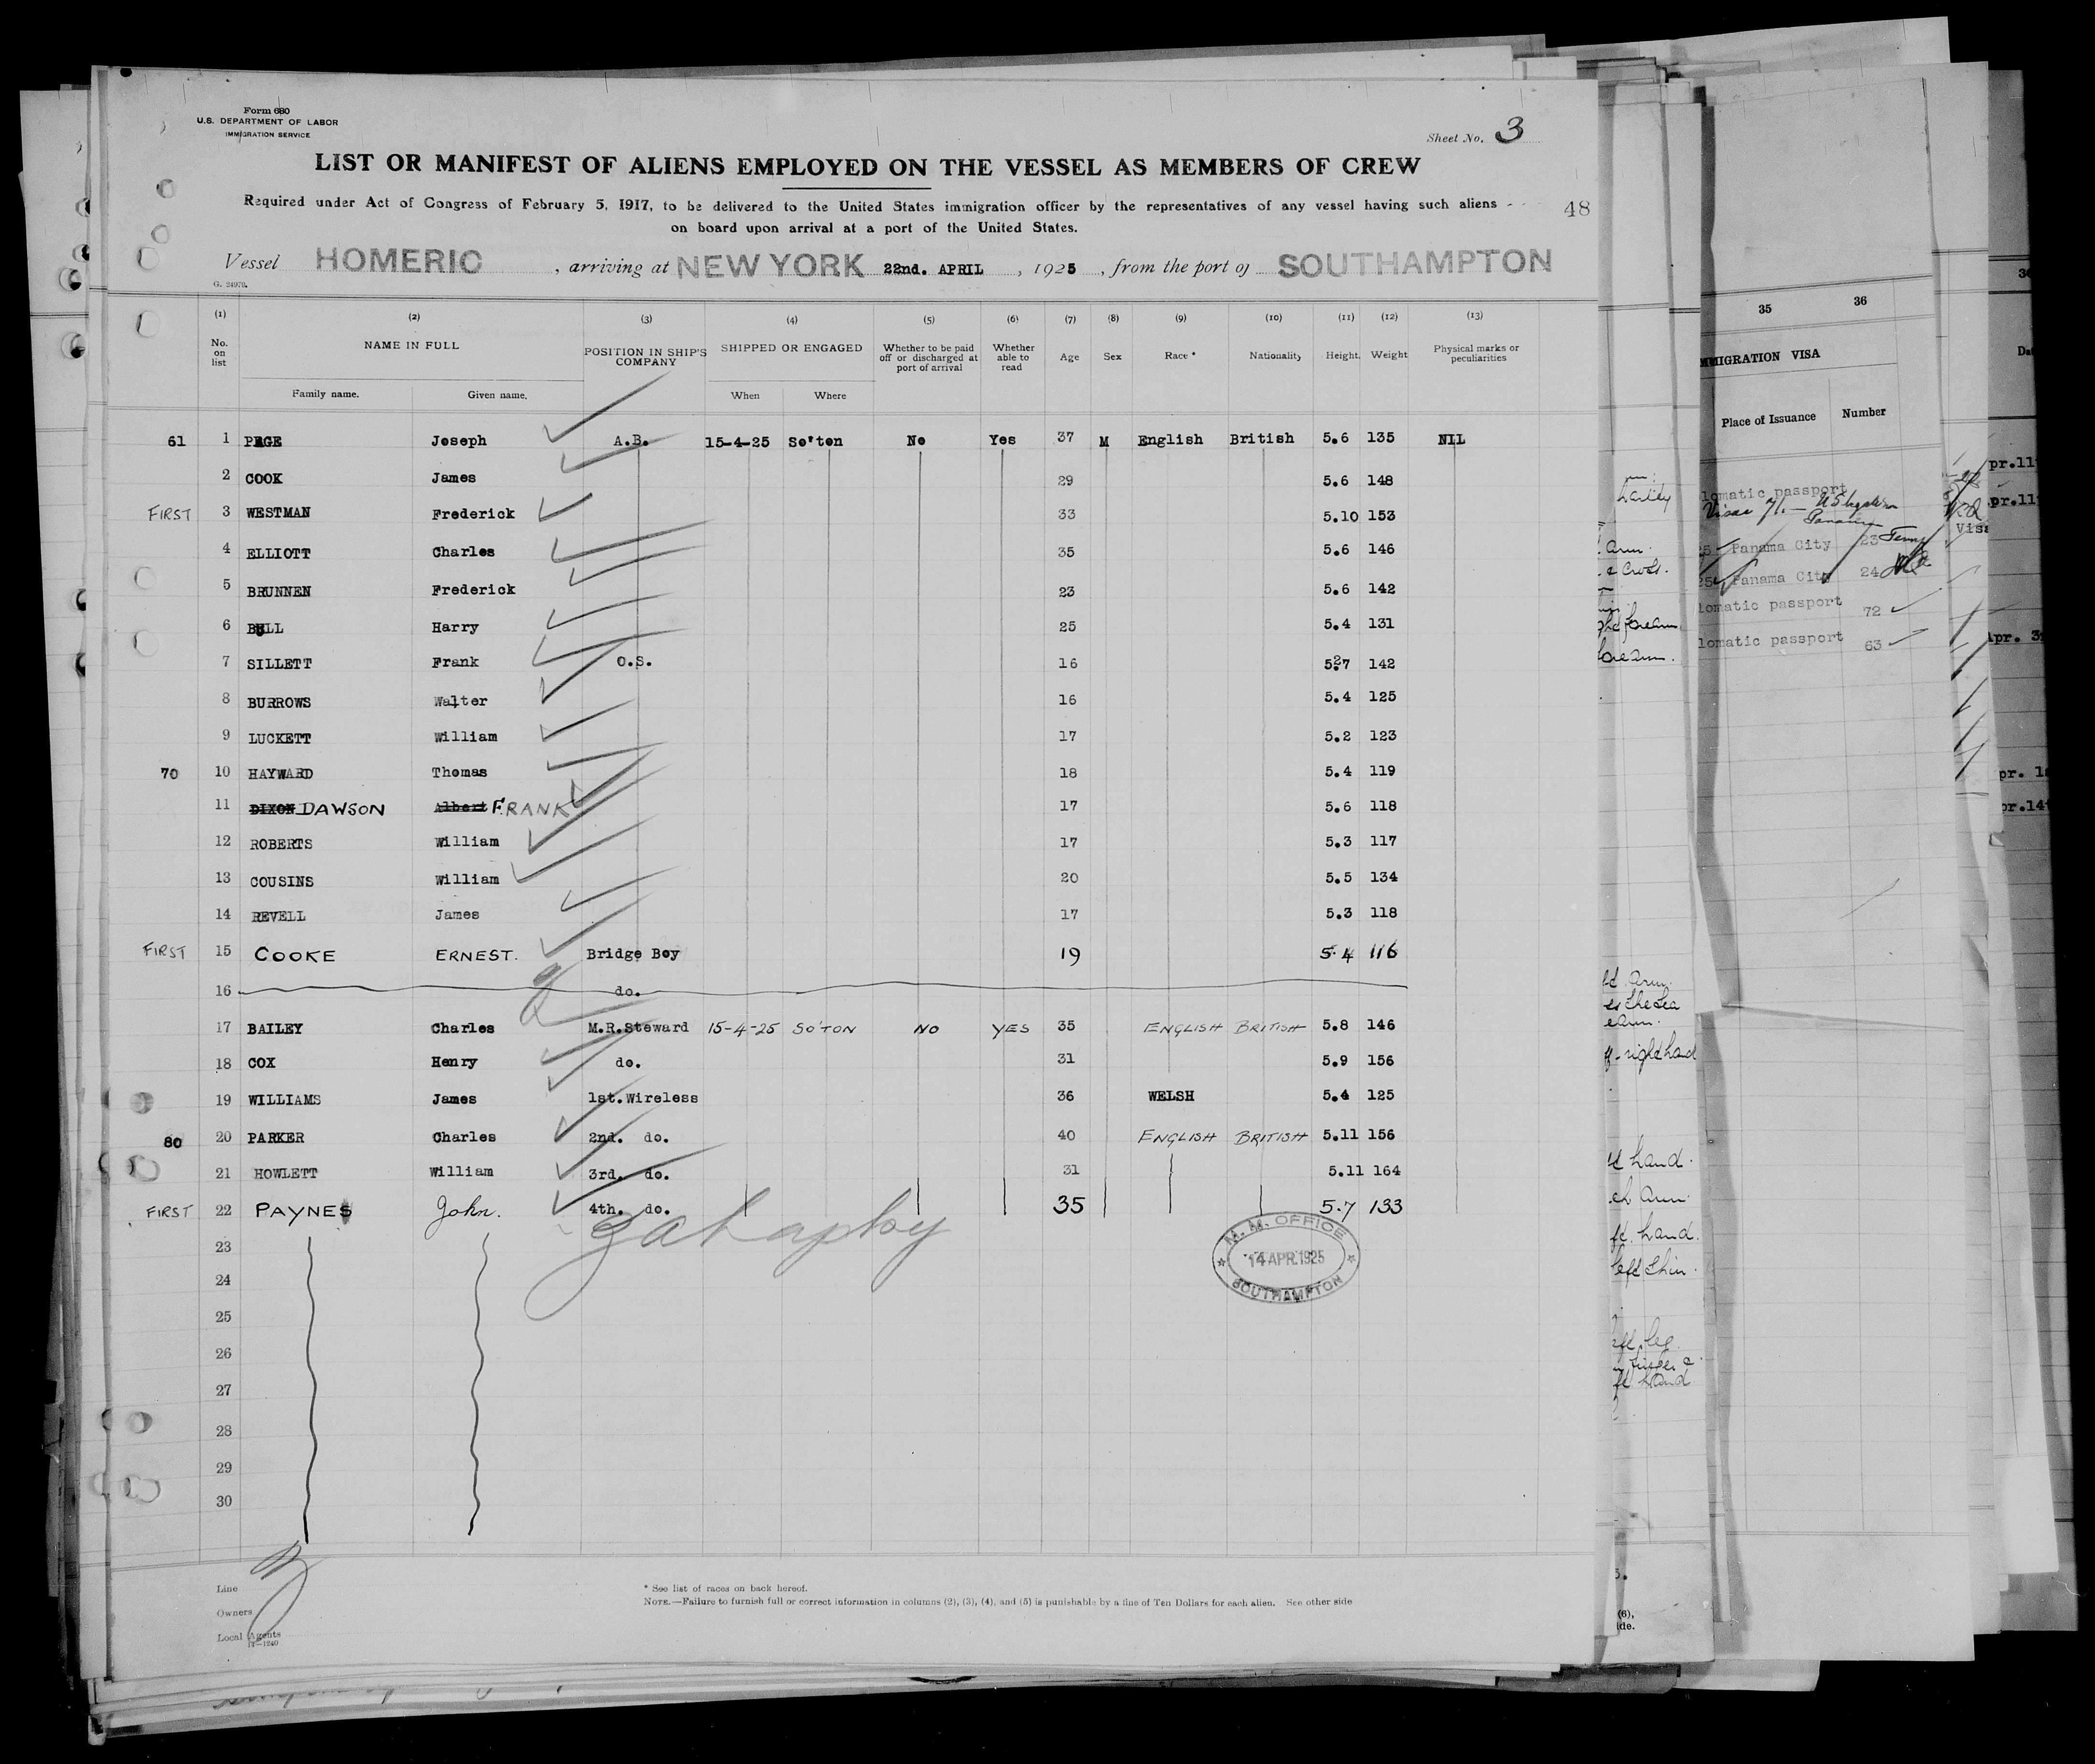 Form 680
U.S. DEPARTMENT OF LABOR
IMMIGRATION SERVICE
Sheet No. 3
LIST OR MANIFEST OF ALIENS EMPLOYED ON THE VESSEL AS MEMBERS OF CREW
Required under Act of Congress of February 5, 1917, to be delivered to the United States immigration officer by the representatives of any vessel having such aliens
on board upon arrival at a port of the United States.
48
Vessel HOMERIC, arriving at NEW YORK 22nd. APRIL, 1925, from the port of SOUTHAMPTON
G. 24979.
(1) (2) (3) (4) (5) (6) (7) (8) (9) (10) (11) (12) (13)
No. on list NAME IN FULL POSITION IN SHIP'S COMPANY SHIPPED OR ENGAGED Whether to be paid off or discharged at port of arrival Whether able to read Age Sex Race * Nationality Height Weight Physical marks or peculiarities
Family name. Given name. When Where
61 1 PAGE Joseph A.B. 15-4-25 So'ton No Yes 37 M English British 5.6 135 NIL
2 COOK James 29 5.6 148
FIRST 3 WESTMAN Frederick 33 5.10 153
4 ELLIOTT Charles 35 5.6 146
5 BRUNNEN Frederick 23 5.6 142
6 BULL Harry 25 5.4 131
7 SILLETT Frank O.S. 16 5.7 142
8 BURROWS Walter 16 5.4 125
9 LUCKETT William 17 5.2 123
70 10 HAYWARD Thomas 18 5.4 119
11 DIXON DAWSON Albert FRANK 17 5.6 118
12 ROBERTS William 17 5.3 117
13 COUSINS William 20 5.5 134
14 REVELL James 17 5.3 118
FIRST 15 COOKE ERNEST. Bridge Boy 19 5.4 116
16 do.
17 BAILEY Charles M.R.Steward 15-4-25 SO'TON NO YES 35 ENGLISH BRITISH 5.8 146
18 COX Henry do. 31 5.9 156
19 WILLIAMS James 1st.Wireless 36 WELSH 5.4 125
80 20 PARKER Charles 2nd. do. 40 ENGLISH BRITISH 5.11 156
21 HOWLETT William 3rd. do. 31 5.11 164
FIRST 22 PAYNES John. 4th. do. 35 5.7 133
23
24
25
26
27
28
29
30
M.M. OFFICE
14 APR 1925
SOUTHAMPTON
Line
Owners
Local Agents
* See list of races on back hereof.
NOTE.—Failure to furnish full or correct information in columns (2), (3), (4), and (5) is punishable by a fine of Ten Dollars for each alien. See other side
35 36
IMMIGRATION VISA
Place of Issuance Number
lomatic passport
Panama City 23
Panama City 24
lomatic passport 72
lomatic passport 63
right hand
hand.
Arm.
ft. hand.
left shin.
ft hand
(6),
ide.
pr.11
pr.11
Apr. 3
pr. 1
pr.14